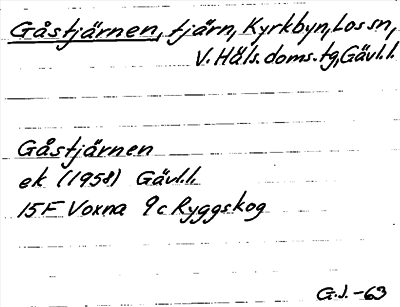 Gåstjärnen, tjärn, Kyrkbyn, Los sn,
V. Häls. doms. tg, Gävl. l.
Gåstjärnen
ek (1958) Gävl. l.
15F Voxna 9c Ryggskog
G.J. -63